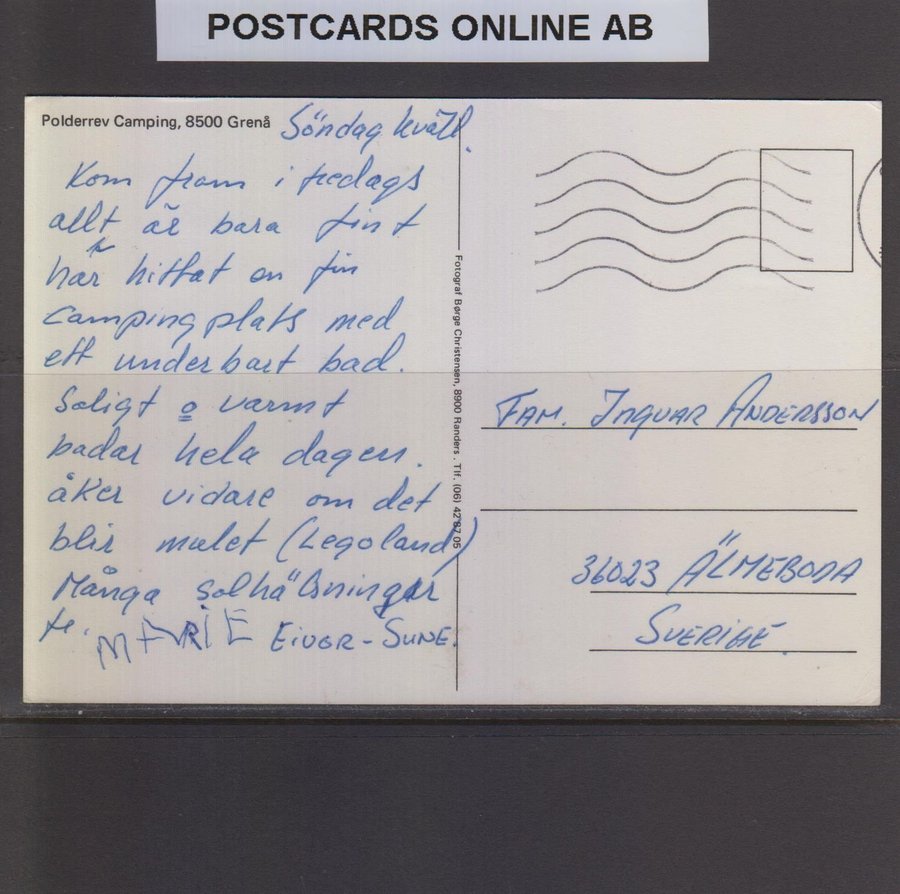 POSTCARDS ONLINE AB
Polderrev Camping, 8500 Grenå
Söndag kväll.
Kom fram i fredags
allt är bara fint
här hittat en fin
campingplats med
ett underbart bad.
Soligt o varmt
badar hela dagen.
åker vidare om det
blir mulet (Legoland)
Många solhälsningar
fr.
MARIE Eivor-Sune.
Fotograf Børge Christensen, 8900 Randers. Tlf. (06) 42 87 05
FAM. INGVAR ANDERSSON
36023 ÄLMEBODA
SVERIGE.